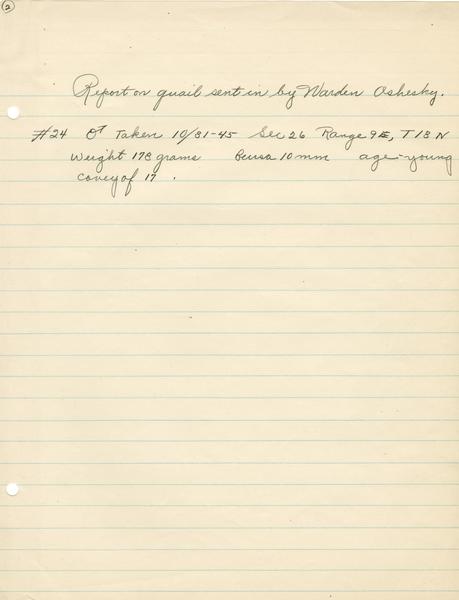 2
Report on quail sent in by Warden Oshesky.
#24 ♂ Taken 10/31-45 Sec 26 Range 9E, T13N
Weight 178 grams Bursa 10 mm age-young
covey of 17.